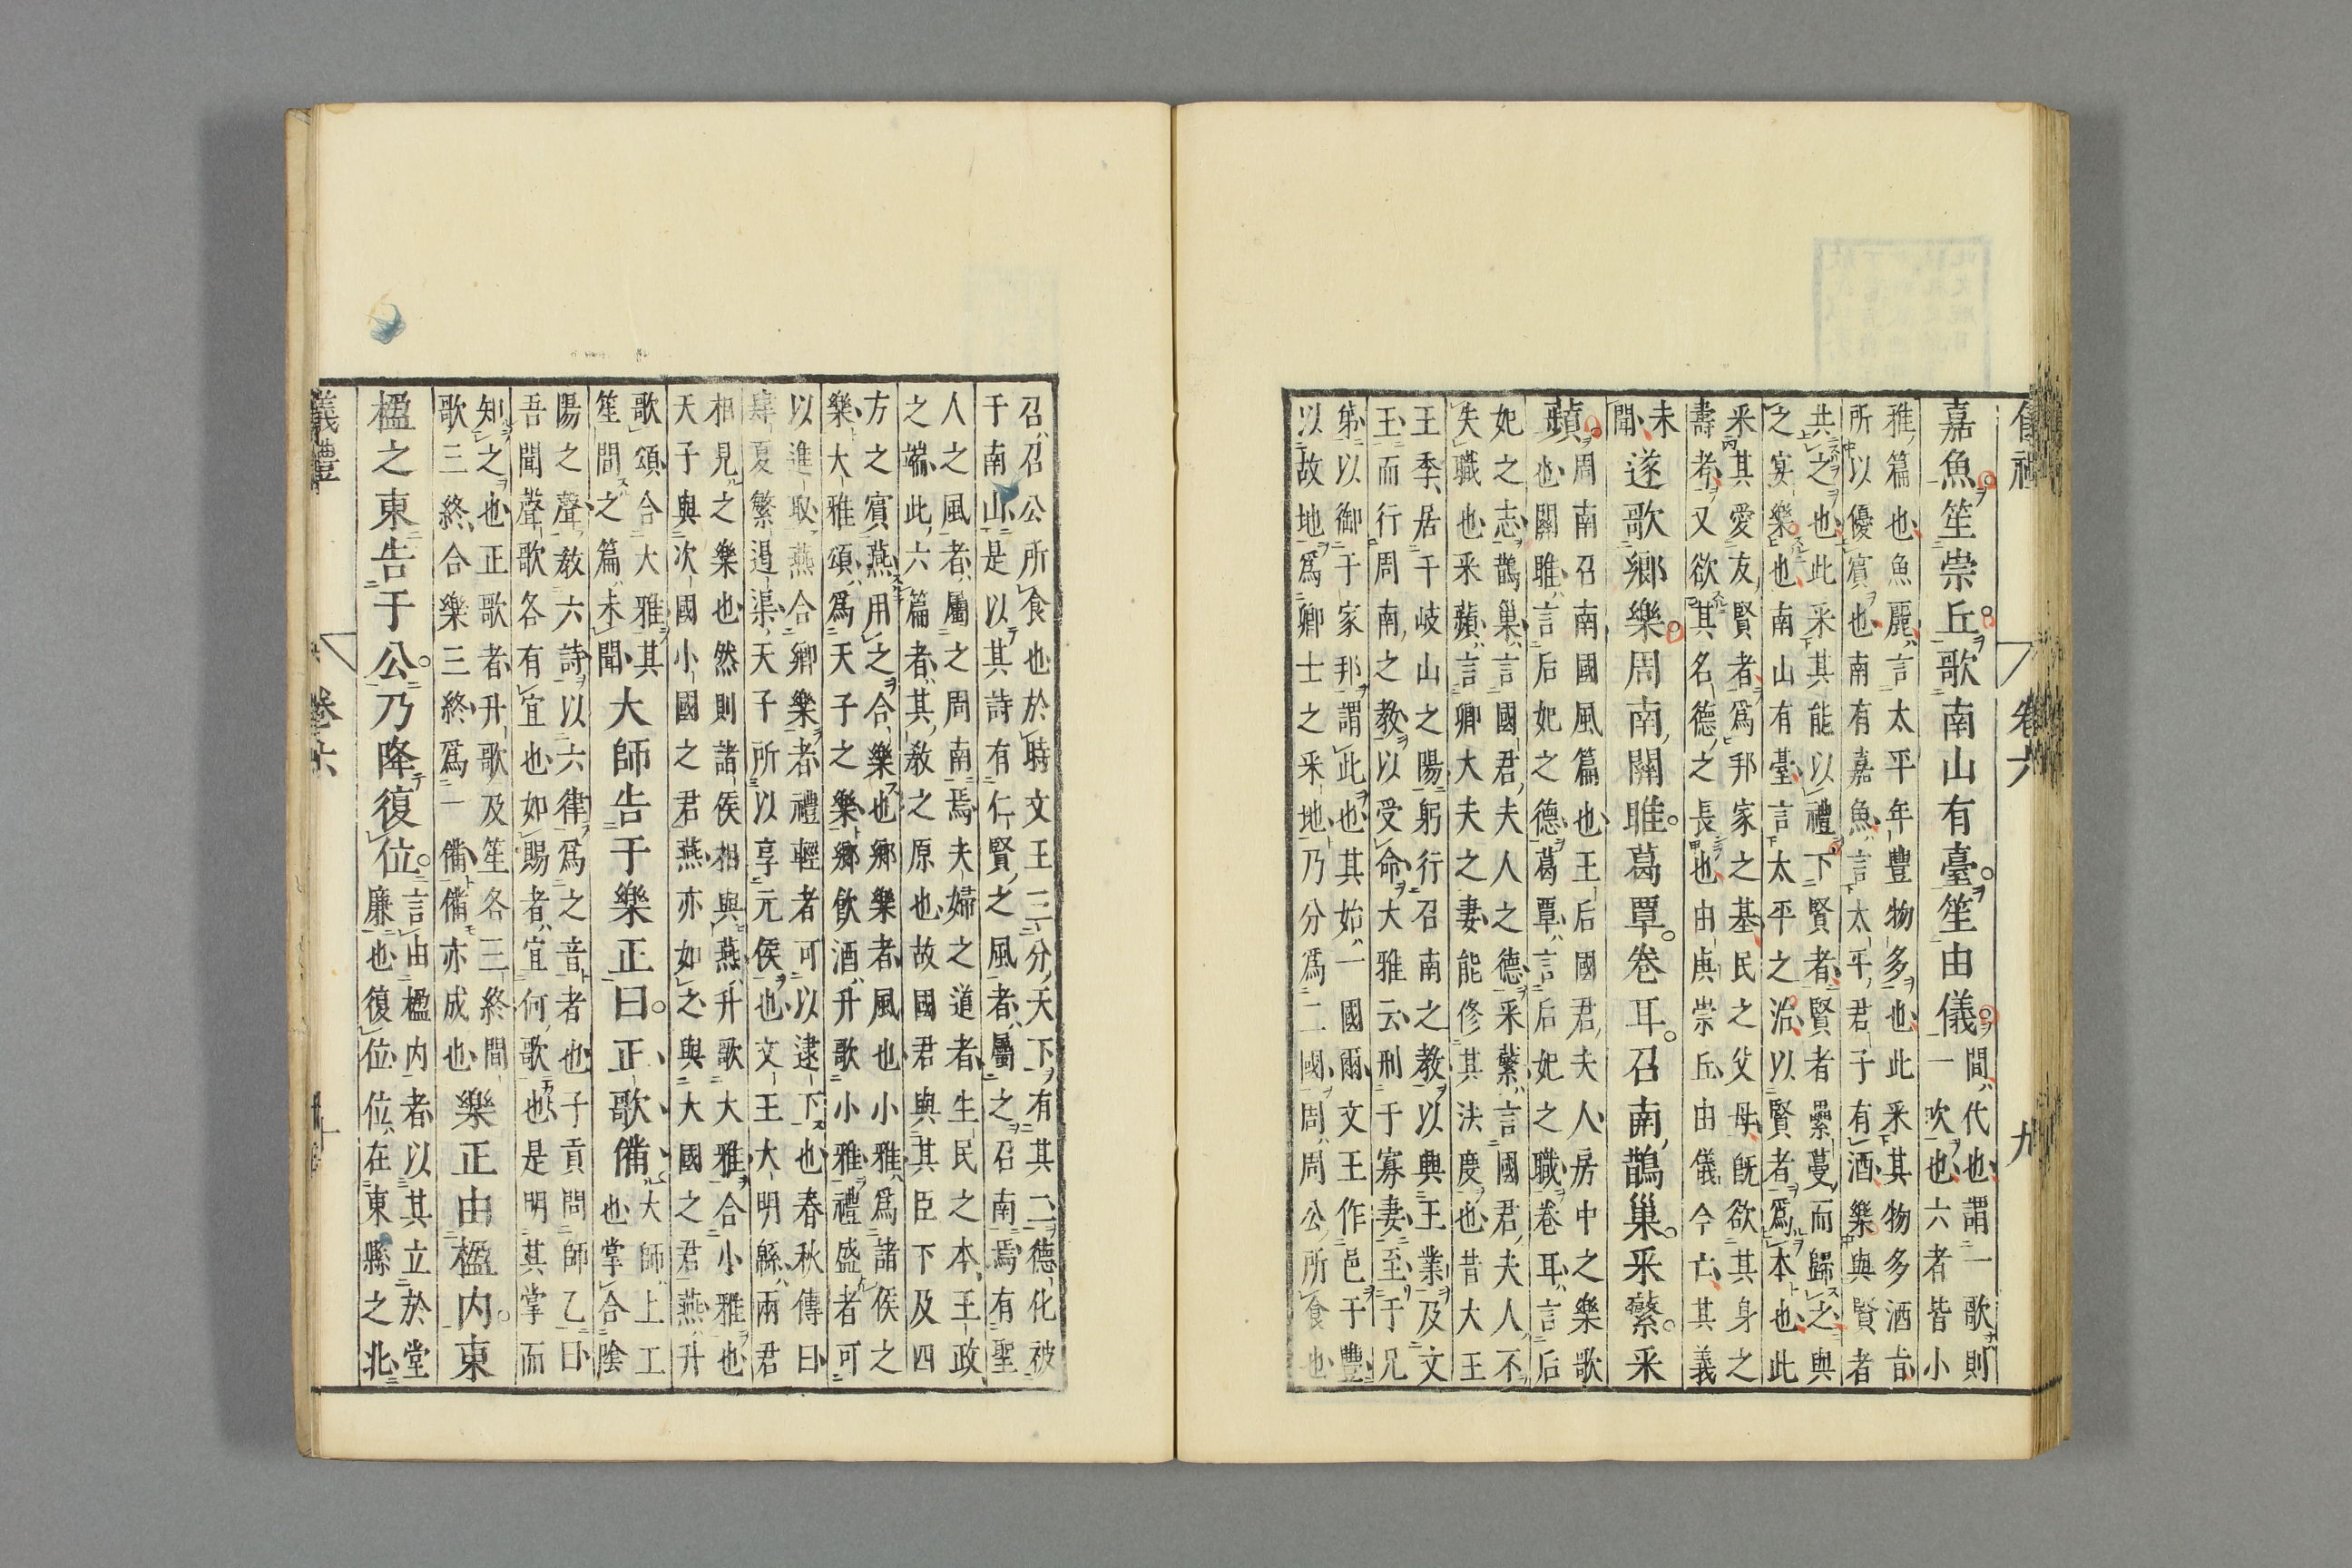 儀禮 卷六 九
嘉魚。笙崇丘。歌南山有臺。笙由儀。
間代也謂一歌則
一吹也六者皆小
雅篇也魚麗言太平年豐物多也此采其物多酒旨
所以優賓也南有嘉魚言太平君子有酒樂與賢者
共之也此采其能以禮下賢者賢者纍蔓而歸之與
之宴樂也南山有臺言太平之治以賢者爲本也此
采其愛友賢者爲邦家之基民之父母既欲其身之
壽考又欲其名德之長也由庚崇丘由儀今亡其義
未
聞
遂歌鄉樂。周南關雎。葛覃。卷耳。召南鵲巢。采蘩。采
蘋
周南召南國風篇也王后國君夫人房中之樂歌
也關雎言后妃之德葛覃言后妃之職卷耳言后
妃之志鵲巢言國君夫人之德采蘩言國君夫人不
失職也采蘋言卿大夫之妻能修其法度也昔大王
王季居于岐山之陽躬行召南之教以興王業及文
王而行周南之教以受命大雅云刑于寡妻至于兄
弟以御于家邦謂此也其始一國爾文王作邑于豐
以故地爲卿士之采地乃分爲二國周周公所食也
召召公所食也於時文王三分天下有其二德化被
于南山是以其詩有仁賢之風者屬之召南焉有聖
人之風者屬之周南焉夫婦之道者生民之本王政
之端此六篇者其教之原也故國君與其臣下及四
方之賓燕用之合樂也鄉樂者風也小雅爲諸侯之
樂大雅頌爲天子之樂鄉飲酒升歌小雅禮盛者可
以進取燕合鄉樂者禮輕者可以逮下也春秋傳曰
肆夏繁遏渠天子所以享元侯也文王大明緜兩君
相見之樂也然則諸侯相與燕升歌大雅合小雅也
天子與次國小國之君燕亦如之與大國之君燕升
歌頌合大雅其
笙間之篇未聞
大師告于樂正曰。正歌備
大師上工
也掌合陰
陽之聲教六詩以六律爲之音者也子貢問師乙曰
吾聞聲歌各有宜也如賜者宜何歌也是明其掌而
知之也正歌者升歌及笙各三終間
歌三終合樂三終爲一備備亦成也
樂正由楹内。東
楹之東告于公。乃降復位。
言由楹内者以其立於堂
廉也復位位在東縣之北
儀禮 卷六